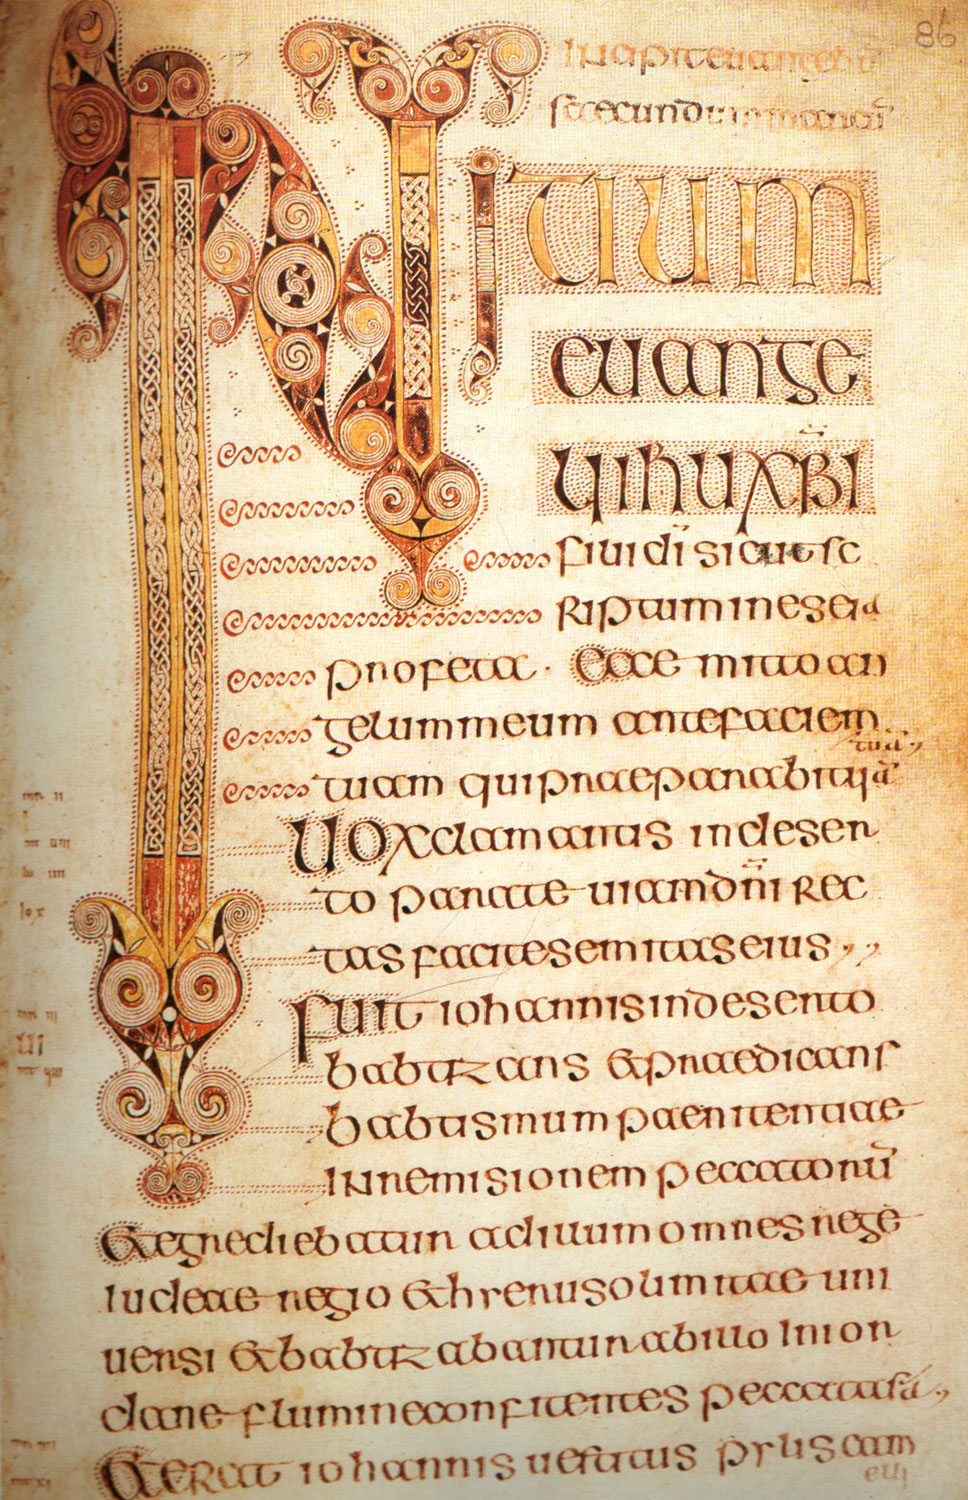 86
INITIUM
euange
lii ihu xp̄i
fili dī sicut sc
riptum in eseia
profeta · Ecce mitto an
gelum meum ante faciem
tuā
tuam qui praeparabit uiā
Uox clamantis in deser
to parate uiam dn̄i rec
tas facite semitas eius
Fuit iohannis in deserto
babtizans & praedicans
babtismum paenitentiae
in remisionem peccatorū
& egrediebatur ad illum omnes rege
iudeae regio & hyerusolimitae uni
uersi & babtizabantur ab illo in ior
dane flumine confitentes peccata sā
& erat iohannis uestitus pylis cam
eli